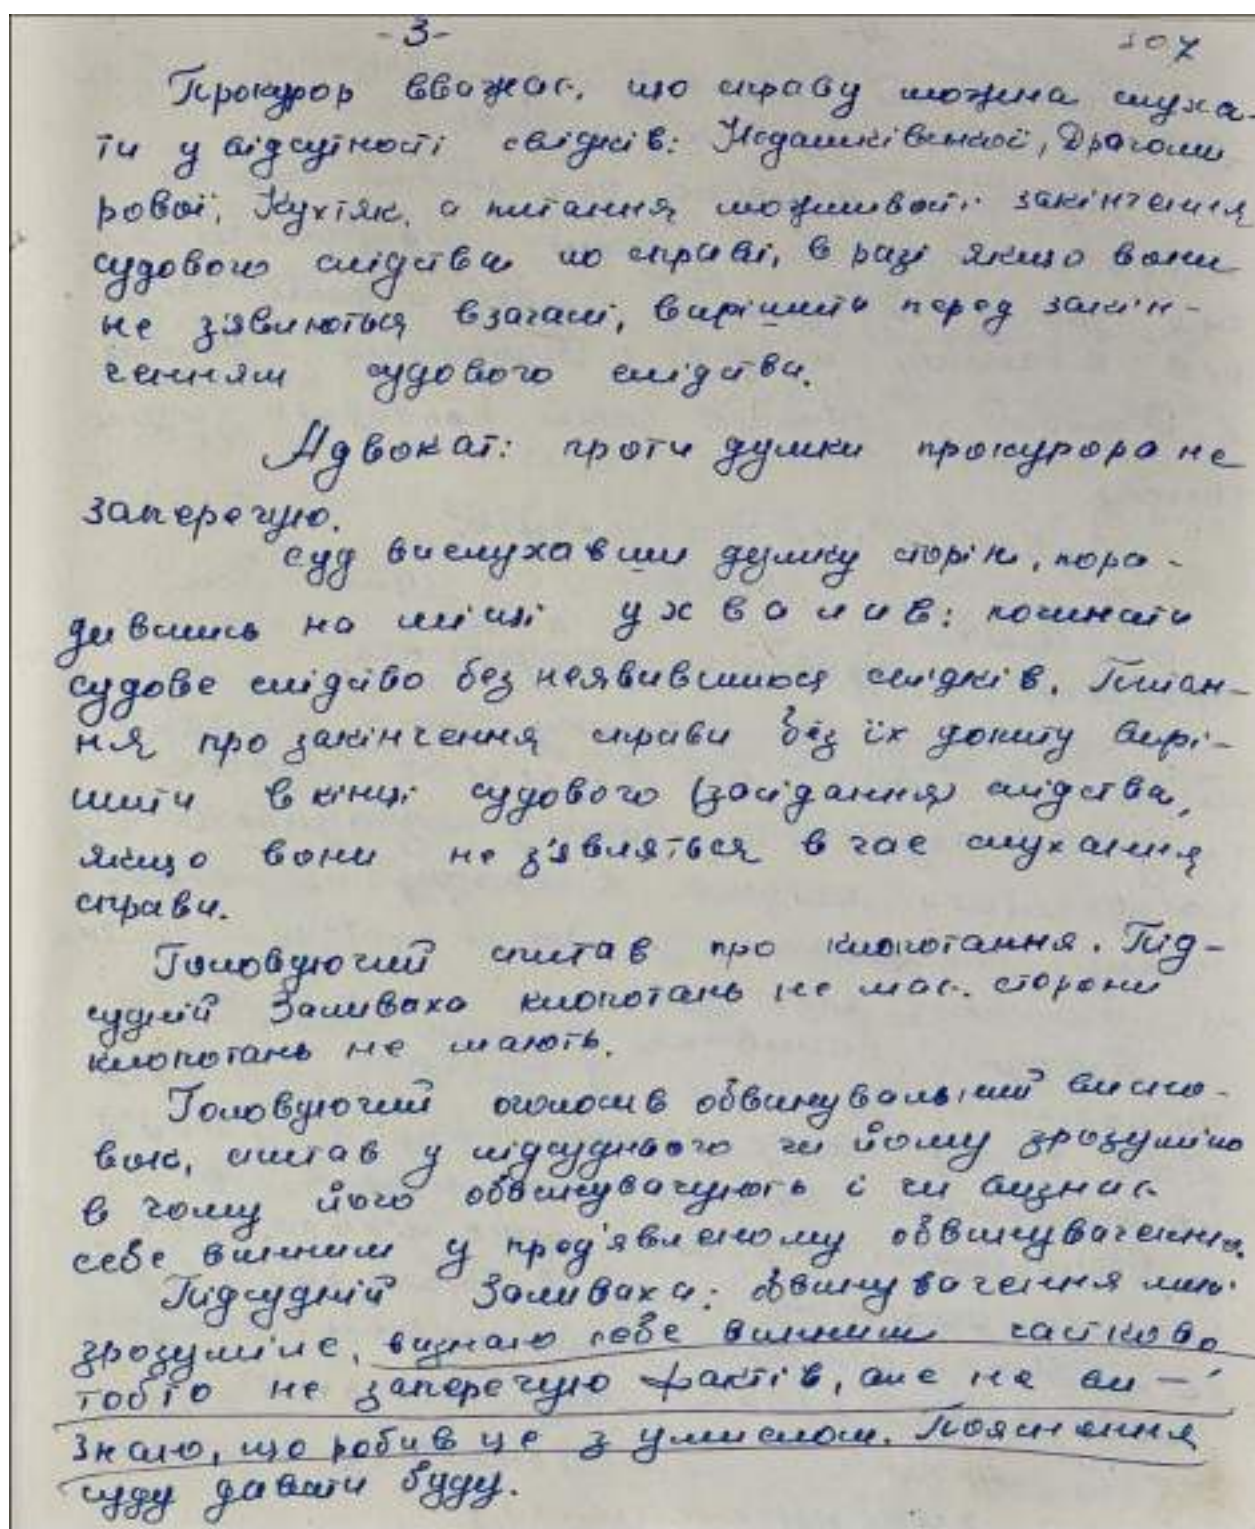 -3-
107
Прокурор вважає, що справу можна слуха-
ти у відсутності свідків: Недашківської, Драгоми
рової, Кухтяк, а питання можливості закінчення
судового слідства по справі, в разі якщо вони
не з'являються взагалі, вирішити перед закін-
ченням судового слідства.
Адвокат: проти думки прокурора не
заперечую.
Суд вислухавши думку сторін, пора-
дившись на місці ухвалив: починати
судове слідство без неявившихся свідків. Питан-
ня про закінчення справи без їх допиту вирі-
шити в кінці судового (засідання) слідства,
якщо вони не з'являться в час слухання
справи.
Головуючий спитав про клопотання. Під-
судній Заливаха клопотань не має. сторони
клопотань не мають.
Головуючий оголосив обвинувальний висно-
вок, спитав у підсуднього чи йому зрозуміло
в чому його обвинувачують і чи визнає
себе винним у пред'явленому обвинуваченню.
Підсудній Заливаха: обвинувачення мені
зрозуміле, визнаю себе винним частково
тобто не заперечую фактів, але не ви-
знаю, що робив це з умислом. Пояснення
суду давати буду.